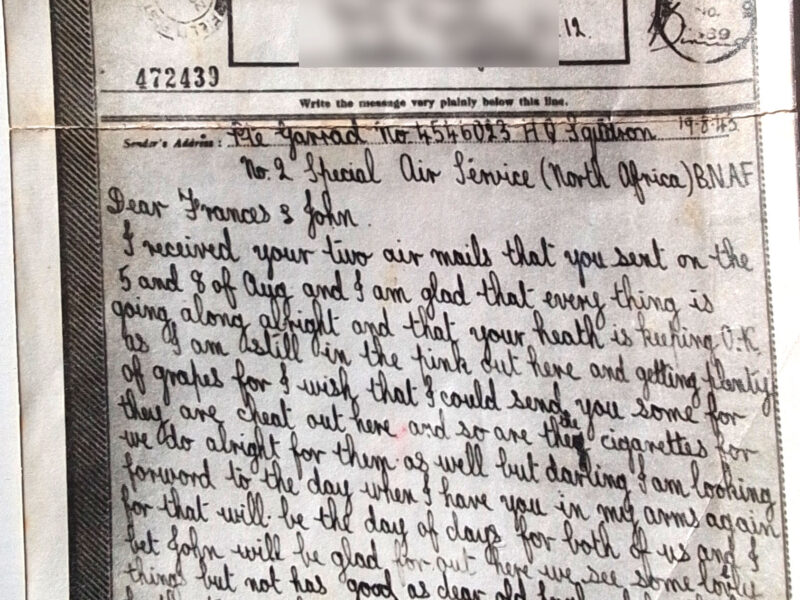 12.
No.
39
472439
Write the message very plainly below this line.
Sender's Address: Pte Garrad No. 4546023 HQ Sqüdron 19-8-43
No. 2 Special Air Service (North Africa) B.N.A.F
Dear Frances & John.
I received your two air mails that you sent on the
5 and 8 of Aug and I am glad that every thing is
going along alright and that your heath is keeping O.K.
as I am still in the pink out here and getting plenty
of grapes for I wish that I could send you some for
they are cheat out here and so are the cigarettes for
we do alright for them as well but darling I am looking
forword to the day when I have you in my arms again
for that will be the day of days for both of us and I
bet John will be glad for out here we see some lovly
things but not has good as dear old